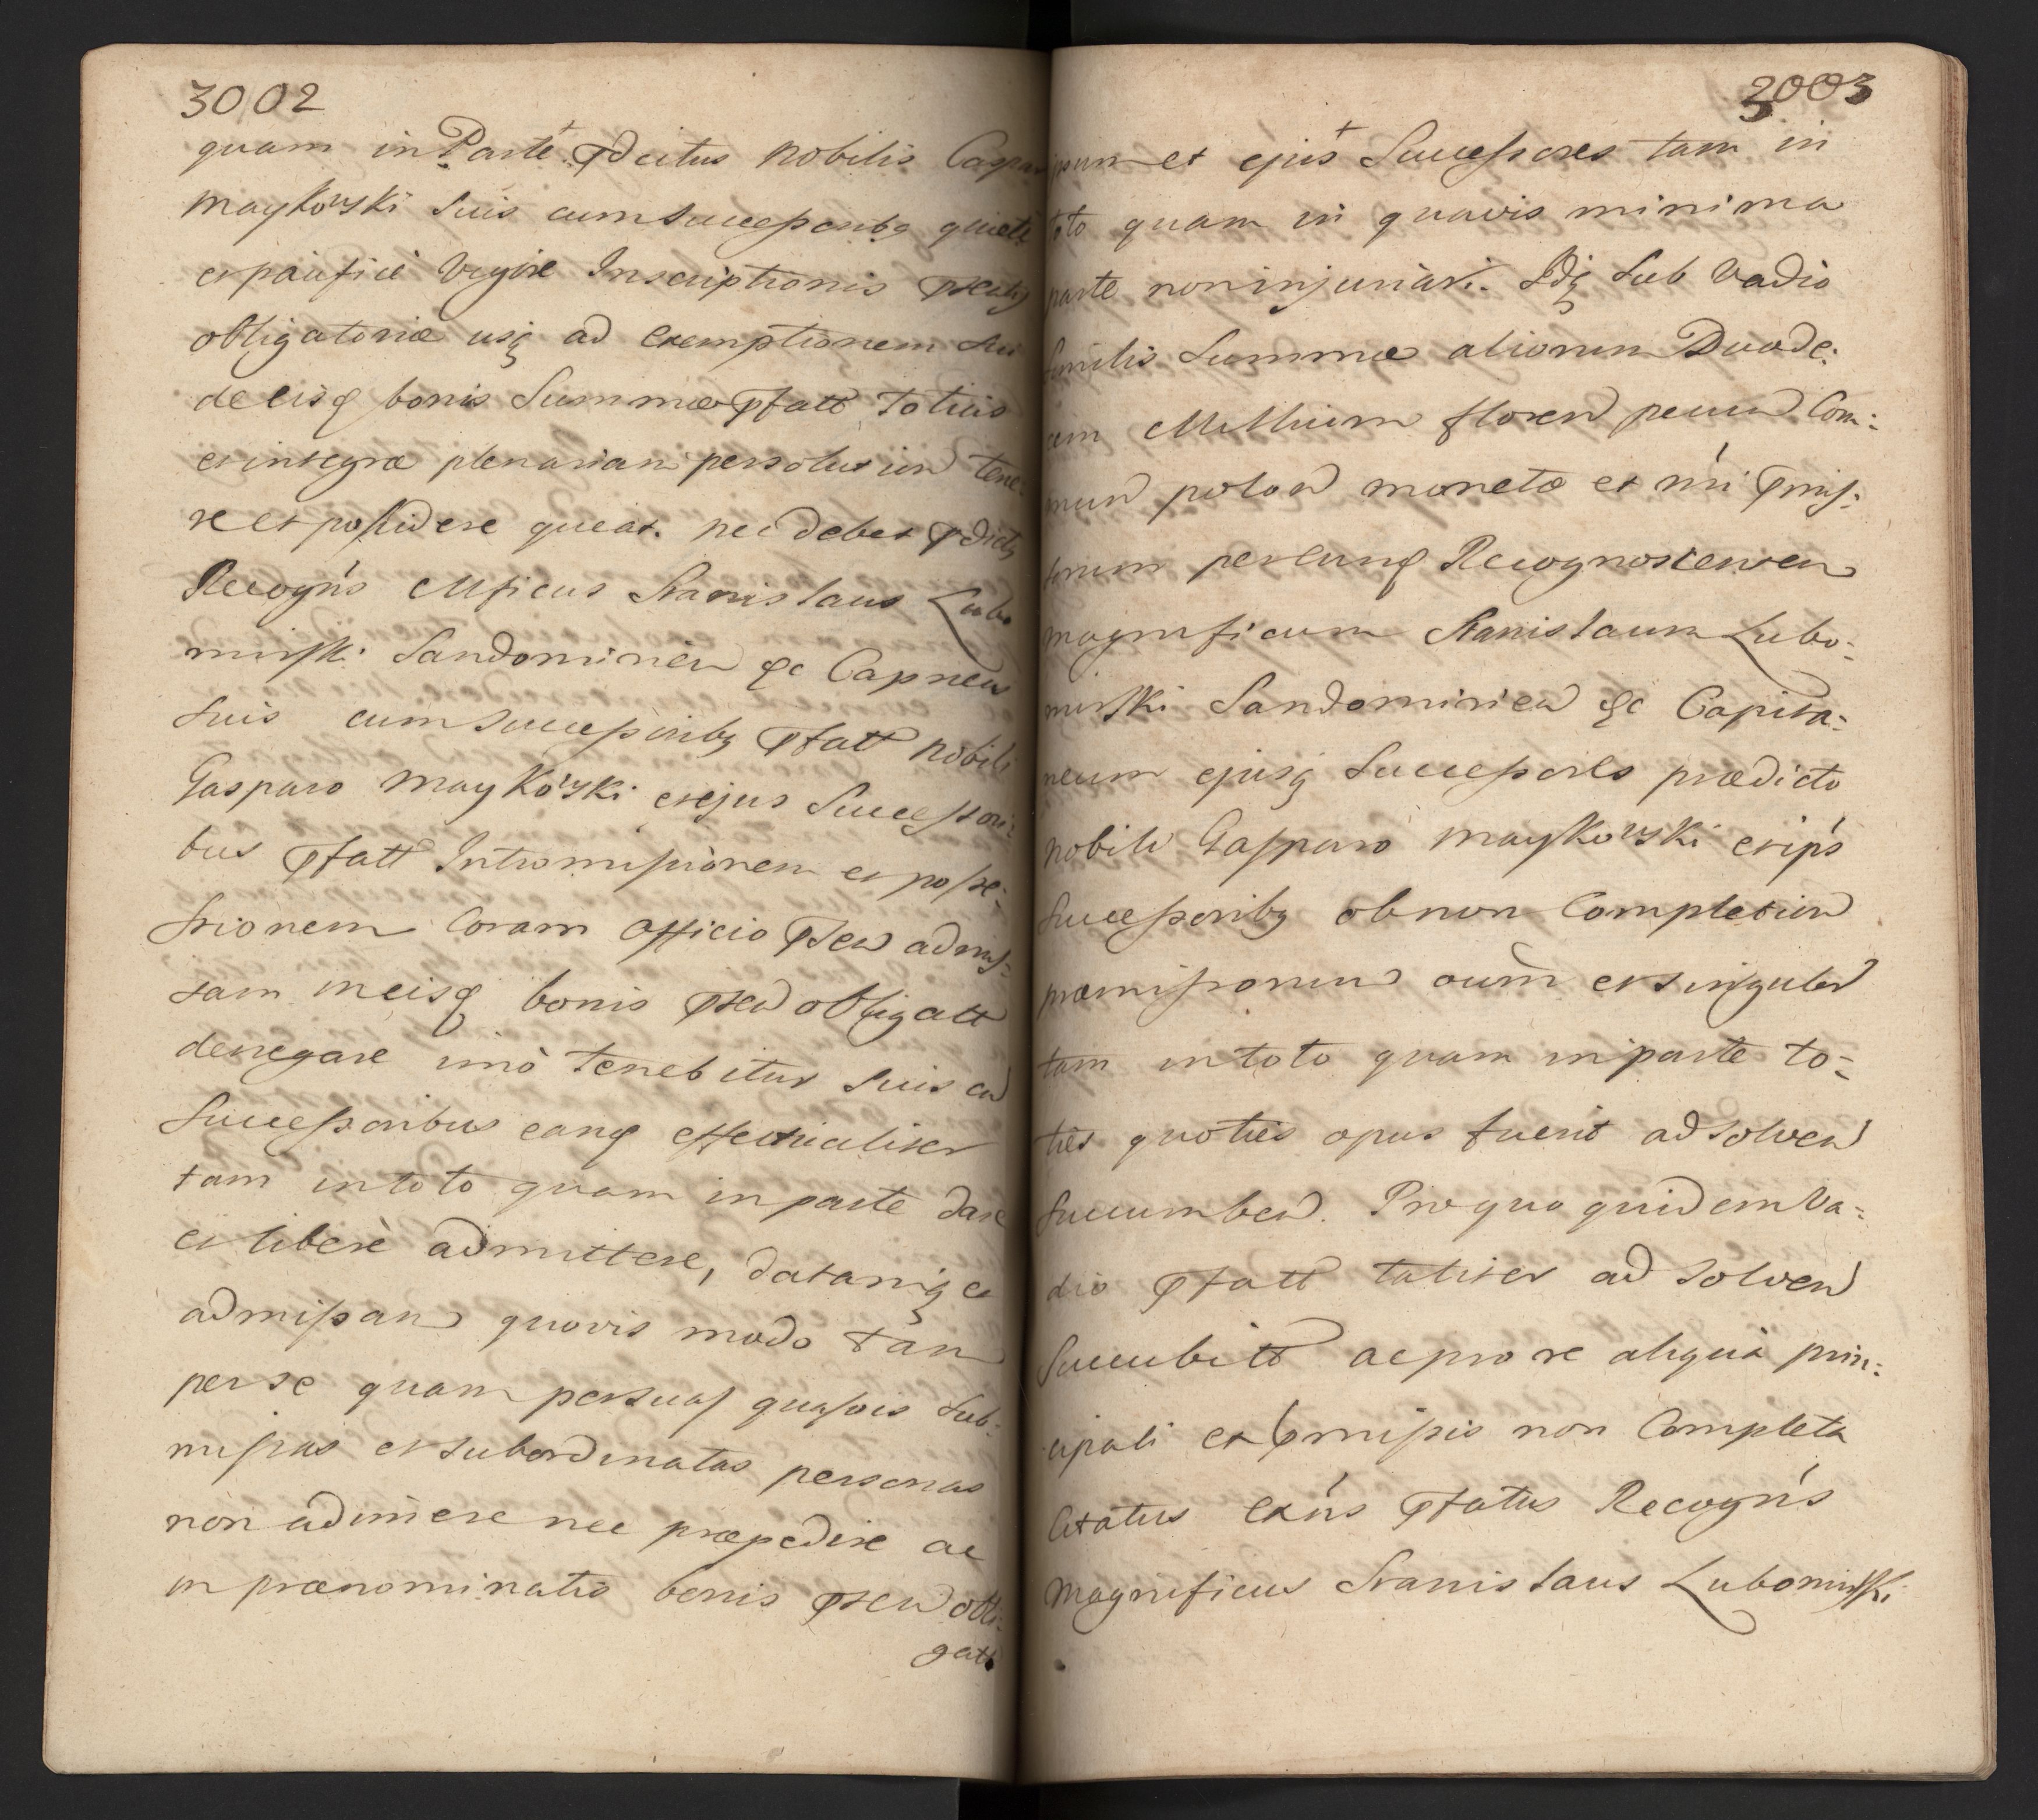 3002
quam in Parte Pdictus Nobilis Caspar
Maykowski suis cum successoribq quiete
et pacifice vigore Inscriptionis Psentis
obligatoriæ usq ad exemptionem sui
de eisq bonis Summæ Pfatt totius
et integræ plenariam persolutien tene:
re et possidere queat. nec debet Pdictq
Recogns Mficus Stanislaus Lubo
mirski Sandomirien &c Capneus
suis cum successoribq Pfatt Nobili
Gasparo Maykowski et ejus Successori:
bus Pfatt Intromissionem et posse:
ssionem Coram Officio Psen admis:
sam in eisq bonis Psen obligatt
denegare imò tenebitur suis cu
Successoribus eanq effectualiter
tam in toto quam in parte dare
et liberè admittere, datamq et
admissam quovis modo tam
per se quam per suas quasvis sub:
missas et subordinatas personas
non adimere nec præpedire ac
in prænominatis bonis Psen obli:
gatt
3003
ipsum et ejus Successores tam in
toto quam in quavis minima
parte non injuriari. Idq sub vadio
similis Summæ aliorum Duode:
cim Millium floren pecun Com:
mun polon monetæ et nri Pmis:
sorum per eunq Recognoscenten
Magnificum Stanislaum Lubo:
mirski Sandomirien &c Capita:
neum ejusq Successores prædicto
Nobili Gasparo Maykowski et ips
Successoribq ob non Completion
præmissorum oum et singulor
tam in toto quam in parte to:
ties quoties opus fuerit ad solven
succumben. Pro quo quidem Va:
dio Pfatt taliter ad solven
Succubitt ac pro re aliqua prin:
cipali ex Pmissis non Completa
Citatus exns Pfatus Recogns
Magnificus Stanislaus Lubomirski